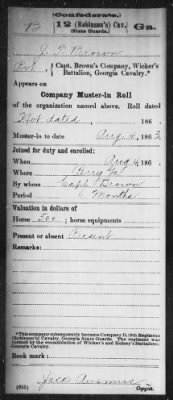 (Confederate.)
12 (Robinson's) Cav. Ga.
(State Guards.)
Brown
Pvt., Capt. Brown's Company, Wicker's
Battalion, Georgia Cavalry.*
Appears on
Company Muster-in Roll
of the organization named above. Roll dated
Not dated, 186 .
Muster-in to date Aug. 4, 186 3
Joined for duty and enrolled:
When Aug 4, 186 .
Where Ga
By whom Capt. Brown
Period 6 Months
Valuation in dollars of
Horse 200 ; horse equipments
Present or absent Present
Remarks:
*This company subsequently became Company D, 12th Regiment
(Robinson's) Cavalry, Georgia State Guards. The regiment was
formed by the consolidation of Wicker's and Battalions,
Ga. Cavalry.
Book mark:
Jack
Copyist.